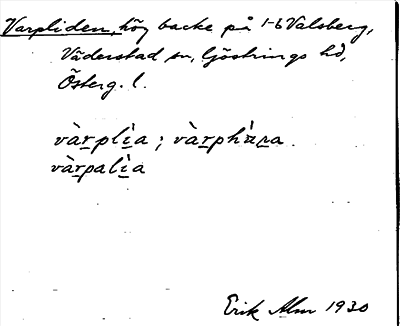 Varpliden, hög backe på 1-6 Valsberg,
Väderstad sn, Göstrings hd,
Österg. l.
vàrplìa ; vàrphæ̀ra.
vàrpalìa
Erik Alm 1930